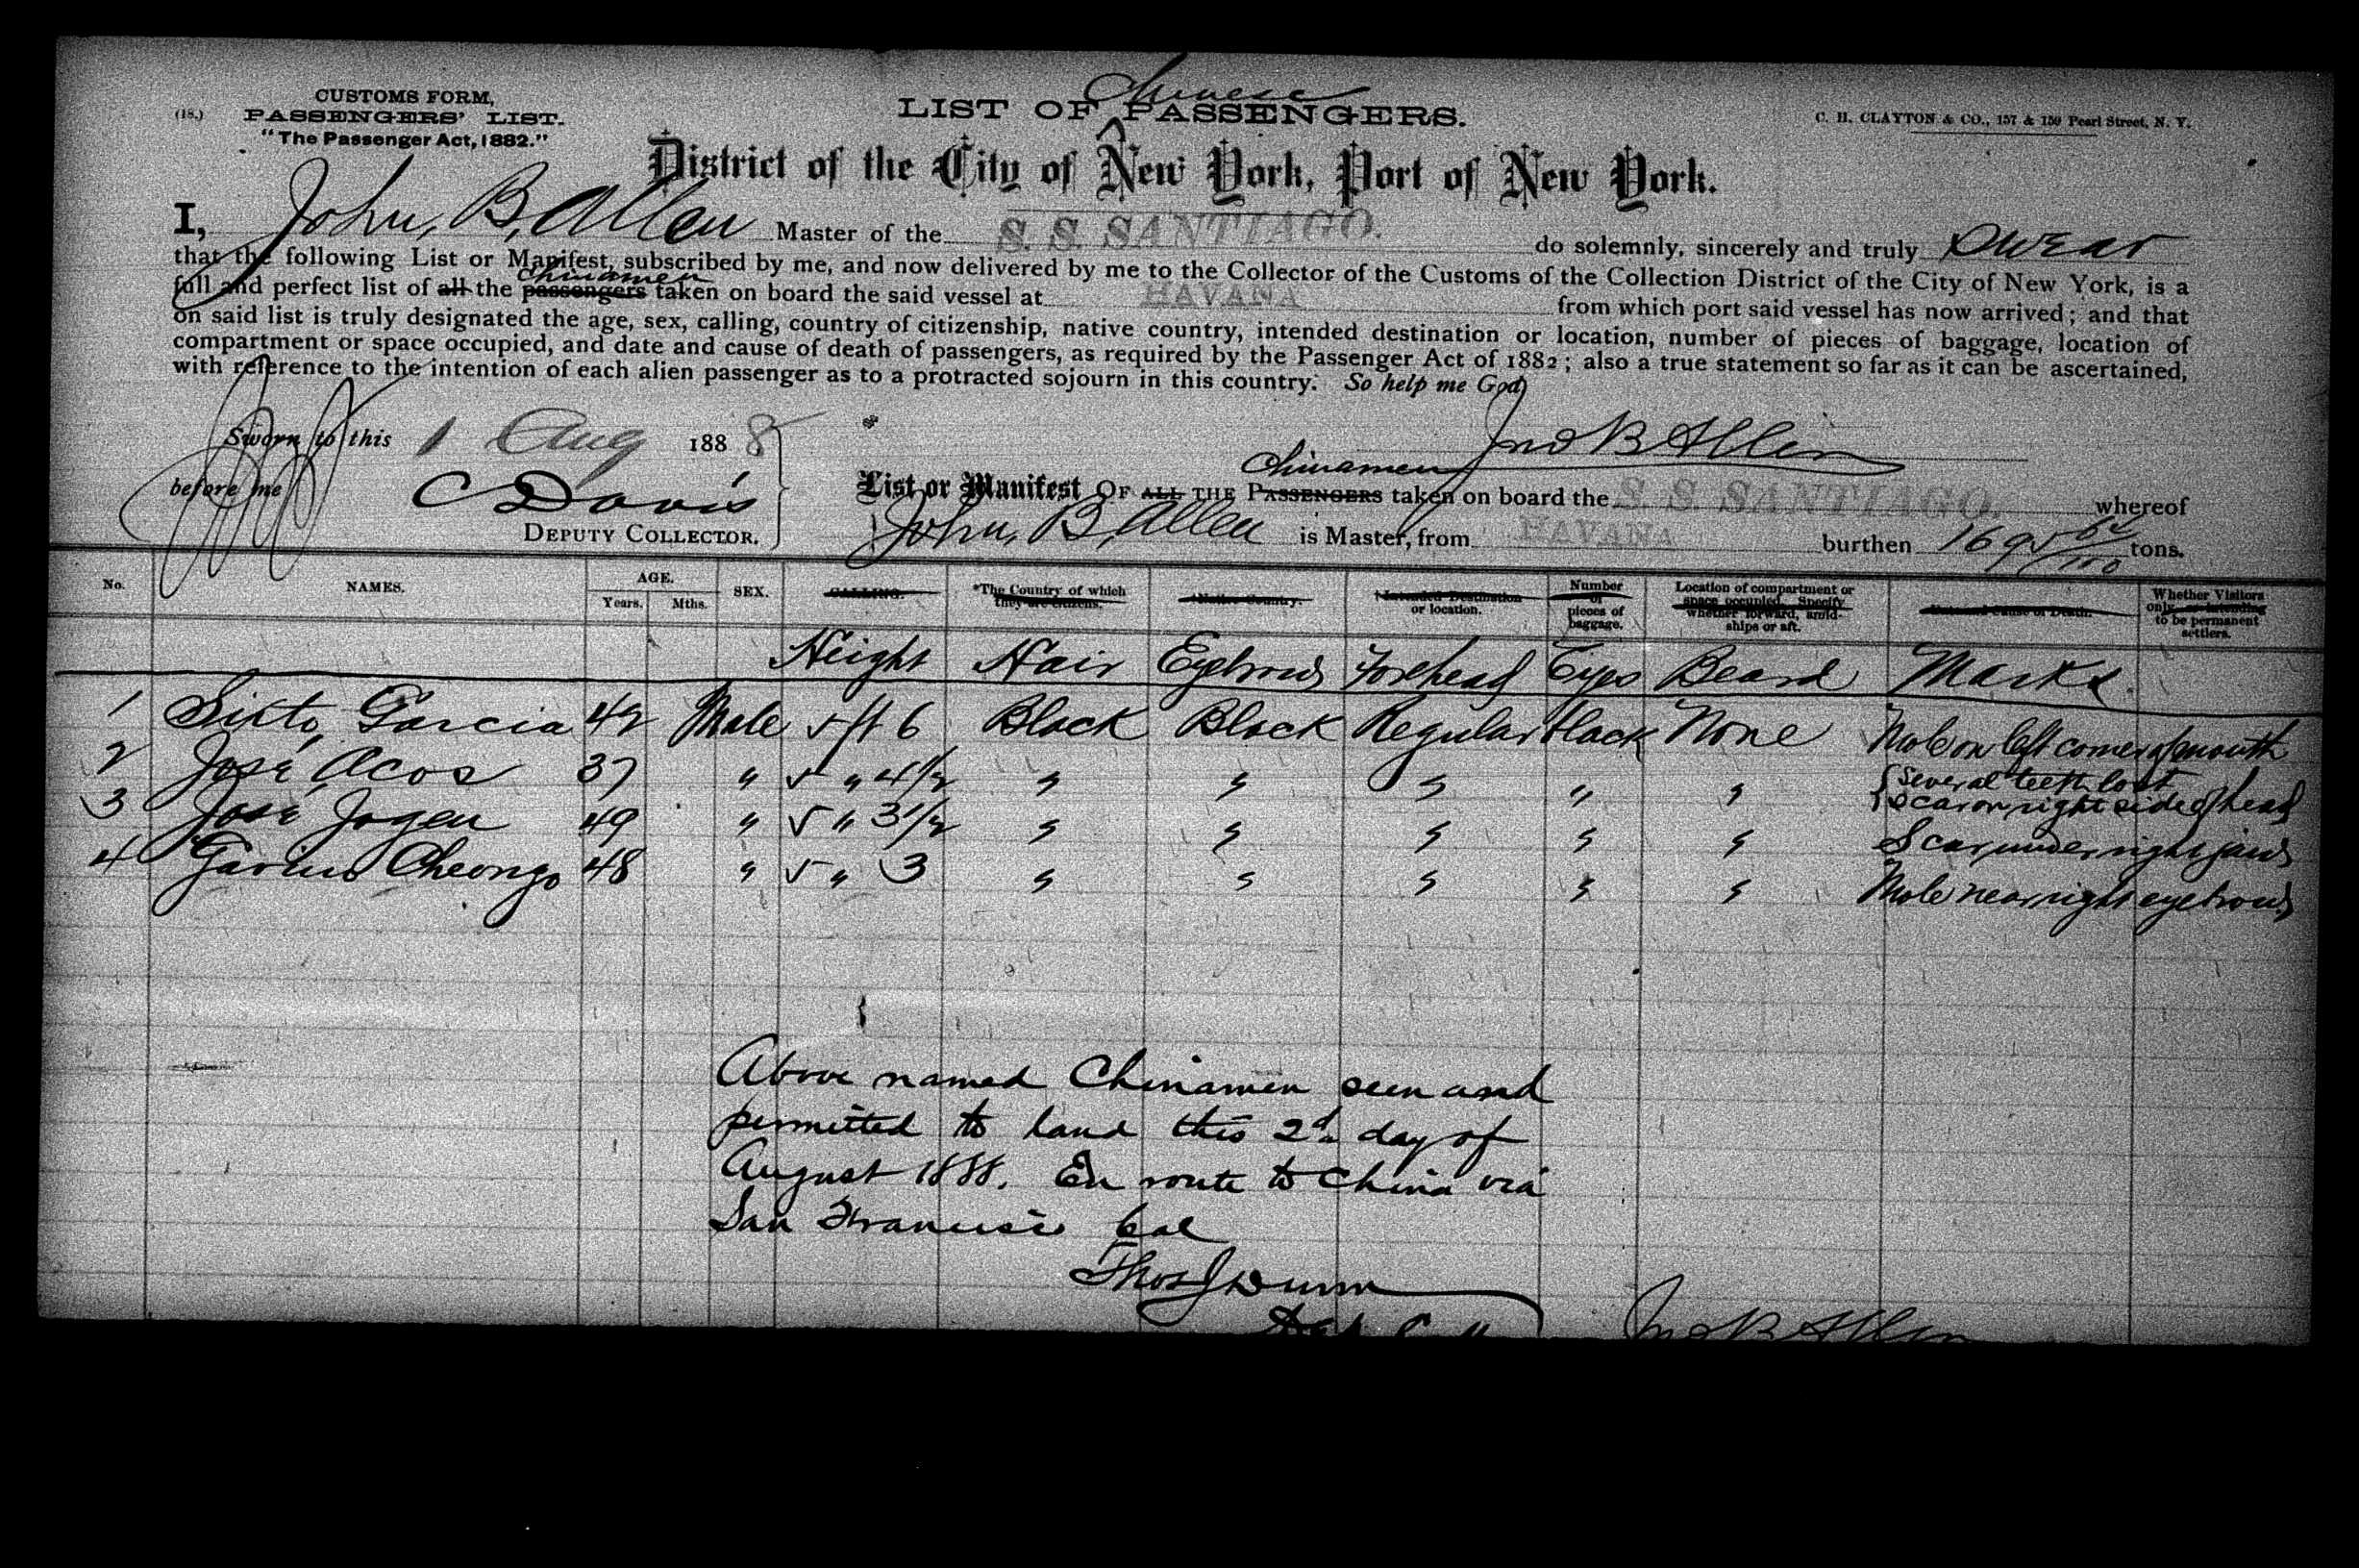 CUSTOMS FORM,
(18.) PASSENGERS' LIST.
"The Passenger Act, 1882."
Chinese
LIST OF PASSENGERS.
C. H. CLAYTON & CO., 157 & 159 Pearl Street, N. Y.
District of the City of New York, Port of New York.
I, John, B, Allen Master of the S. S. SANTIAGO. do solemnly, sincerely and truly swear
that the following List or Manifest, subscribed by me, and now delivered by me to the Collector of the Customs of the Collection District of the City of New York, is a
Chinamen
full and perfect list of all the passengers taken on board the said vessel at HAVANA from which port said vessel has now arrived; and that
on said list is truly designated the age, sex, calling, country of citizenship, native country, intended destination or location, number of pieces of baggage, location of
compartment or space occupied, and date and cause of death of passengers, as required by the Passenger Act of 1882; also a true statement so far as it can be ascertained,
with reference to the intention of each alien passenger as to a protracted sojourn in this country. So help me God
Sworn to this 1 Aug 1888
Jno B Allen
before me C Davis
DEPUTY COLLECTOR.
Chinamen
List or Manifest OF ALL THE PASSENGERS taken on board the S. S. SANTIAGO. whereof
John, B, Allen is Master, from HAVANA burthen 1695 62/100 tons.
No. NAMES. AGE. Years. Mths. SEX. CALLING. *The Country of which they are citizens. Native Country. Intended Destination or location. Number of pieces of baggage. Location of compartment or space occupied. Specify whether forward, amidships or aft. Date and Cause of Death. Whether Visitors only, or intending to be permanent settlers.
Height Hair Eyebrows Forehead Eyes Beard Marks
1 Sixto Garcia 42 Male 5 ft 6 Black Black Regular black None Mole on left corner of mouth
2 José Acos 37 " 5 " 4½ " " " " " { Several teeth lost
Scar on right side of head
3 José Jogen 49 " 5 " 3½ " " " " " Scar under right jaw
4 Cheongo 48 " 5 " 3 " " " " " Mole near right eyebrow
Above named Chinamen seen and
permitted to land this 2d day of
August 1888. En route to China via
San Francisco Cal
Thos J Dunn
Jno B Allen